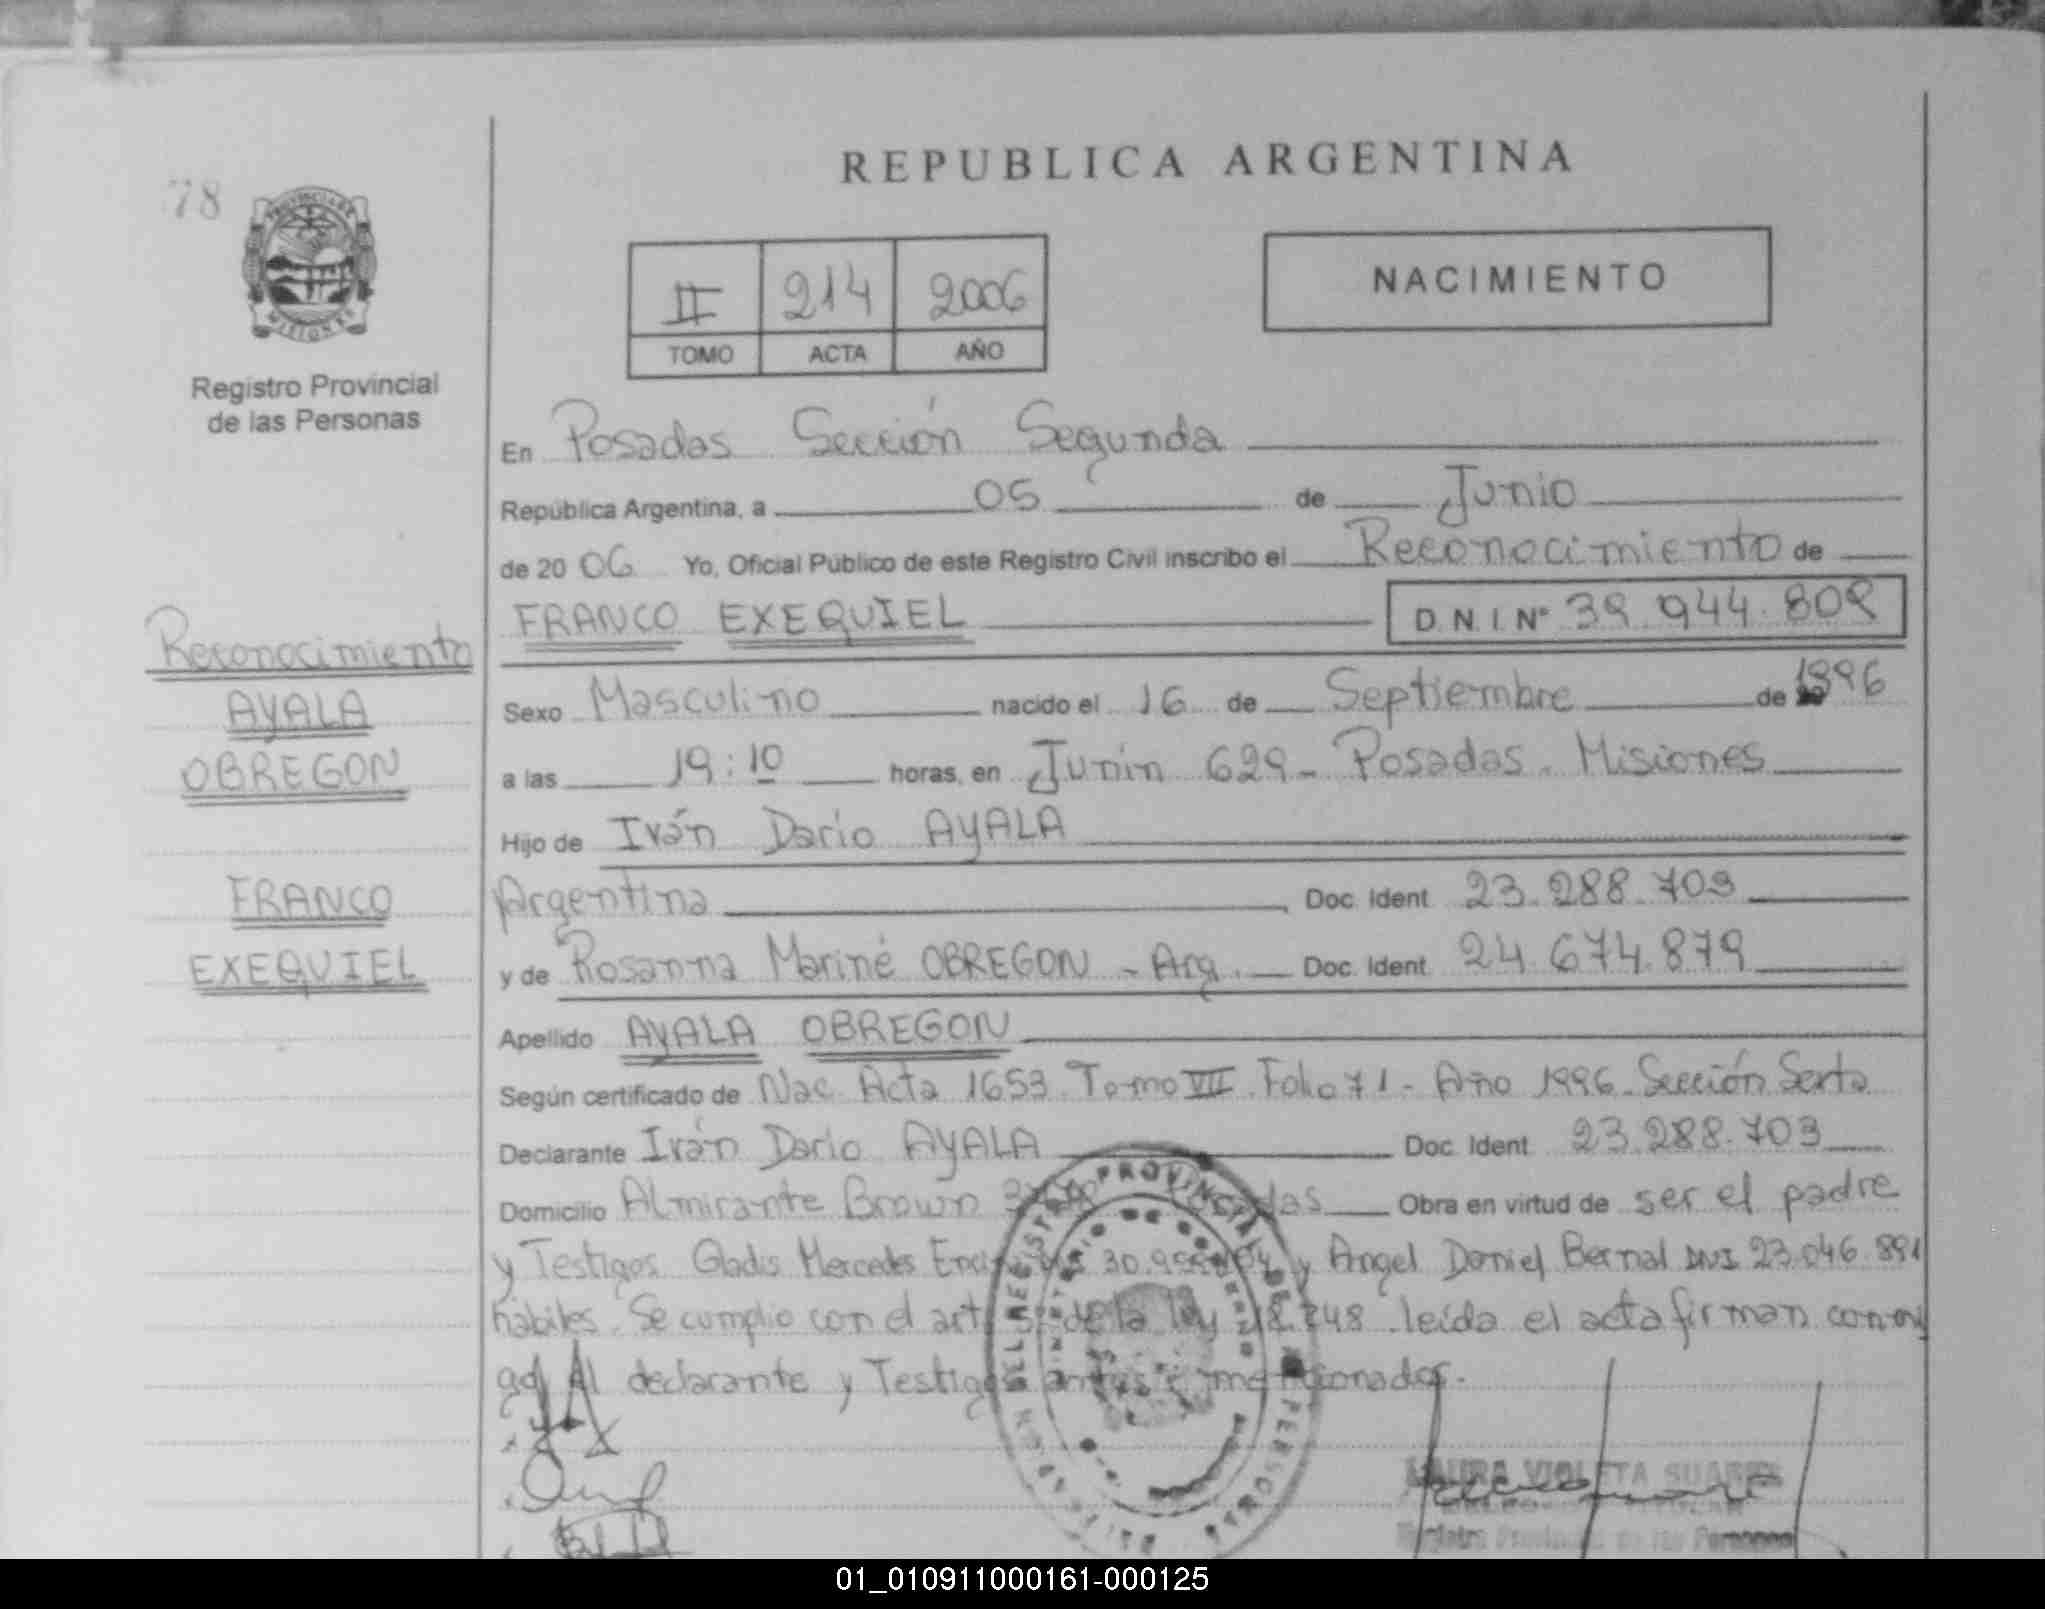 78
PROVINCIA DE
MISIONES
Registro Provincial
de las Personas
REPUBLICA ARGENTINA
II 214 2006
TOMO ACTA AÑO
NACIMIENTO
En Posadas Sección Segunda
República Argentina, a 05 de Junio
de 2006 Yo, Oficial Público de este Registro Civil inscribo el Reconocimiento de
FRANCO EXEQUIEL D.N.I. Nº 39.944.809
Reconocimiento
AYALA
OBREGON
FRANCO
EXEQUIEL
Sexo Masculino nacido el 16 de Septiembre de 1996
a las 19:10 horas, en Junín 629 - Posadas - Misiones
Hijo de Iván Darío AYALA
Argentina Doc. Ident. 23.288.703
y de Rosanna Mariné OBREGON - Arg. Doc. Ident. 24.674.879
Apellido AYALA OBREGON
Según certificado de Nac. Acta 1653. Tomo VII. Folio 71 - Año 1996 - Sección Sexta
Declarante Iván Darío AYALA Doc. Ident. 23.288.703
Domicilio Almirante Brown Obra en virtud de ser el padre
y Testigos Gladis Mercedes y Angel Daniel Bernal DNI 23.046.891
hábiles. Se cumplio con el art de la ley 18.248. leída el acta firman conmi
go El declarante y Testigos antes mencionados.
DEL REGISTRO PROVINCIAL DE PERSONAS
MINISTERIO DE GOBIERNO
LAURA VIOLETA SUAREZ
Registro Provincial de las Personas
01_010911000161-000125